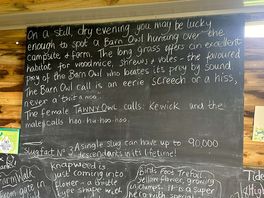 On a still, dry evening you may be lucky
enough to spot a Barn Owl hunting over the
campsite & farm. The long grass offers an excellent
habitat for woodmice, shrews & voles - the favoured
prey of the Barn Owl who locates its prey by sound
The Barn Owl call is an eerie screech or a hiss,
never a 'twit a woo'.
The female TAWNY Owl calls: Kewick and the
male calls hoo hu hoo hoo.
Slugfact No 3 A single slug can have up to 90,000
descendants in its lifetime!
Farm Walk
from gate in
Knapweed is
just coming into
flower - a thistle
type shape with
Birds Foot Trefoil
yellow flower, growing
in clumps. It is a super
with special
Tide
High